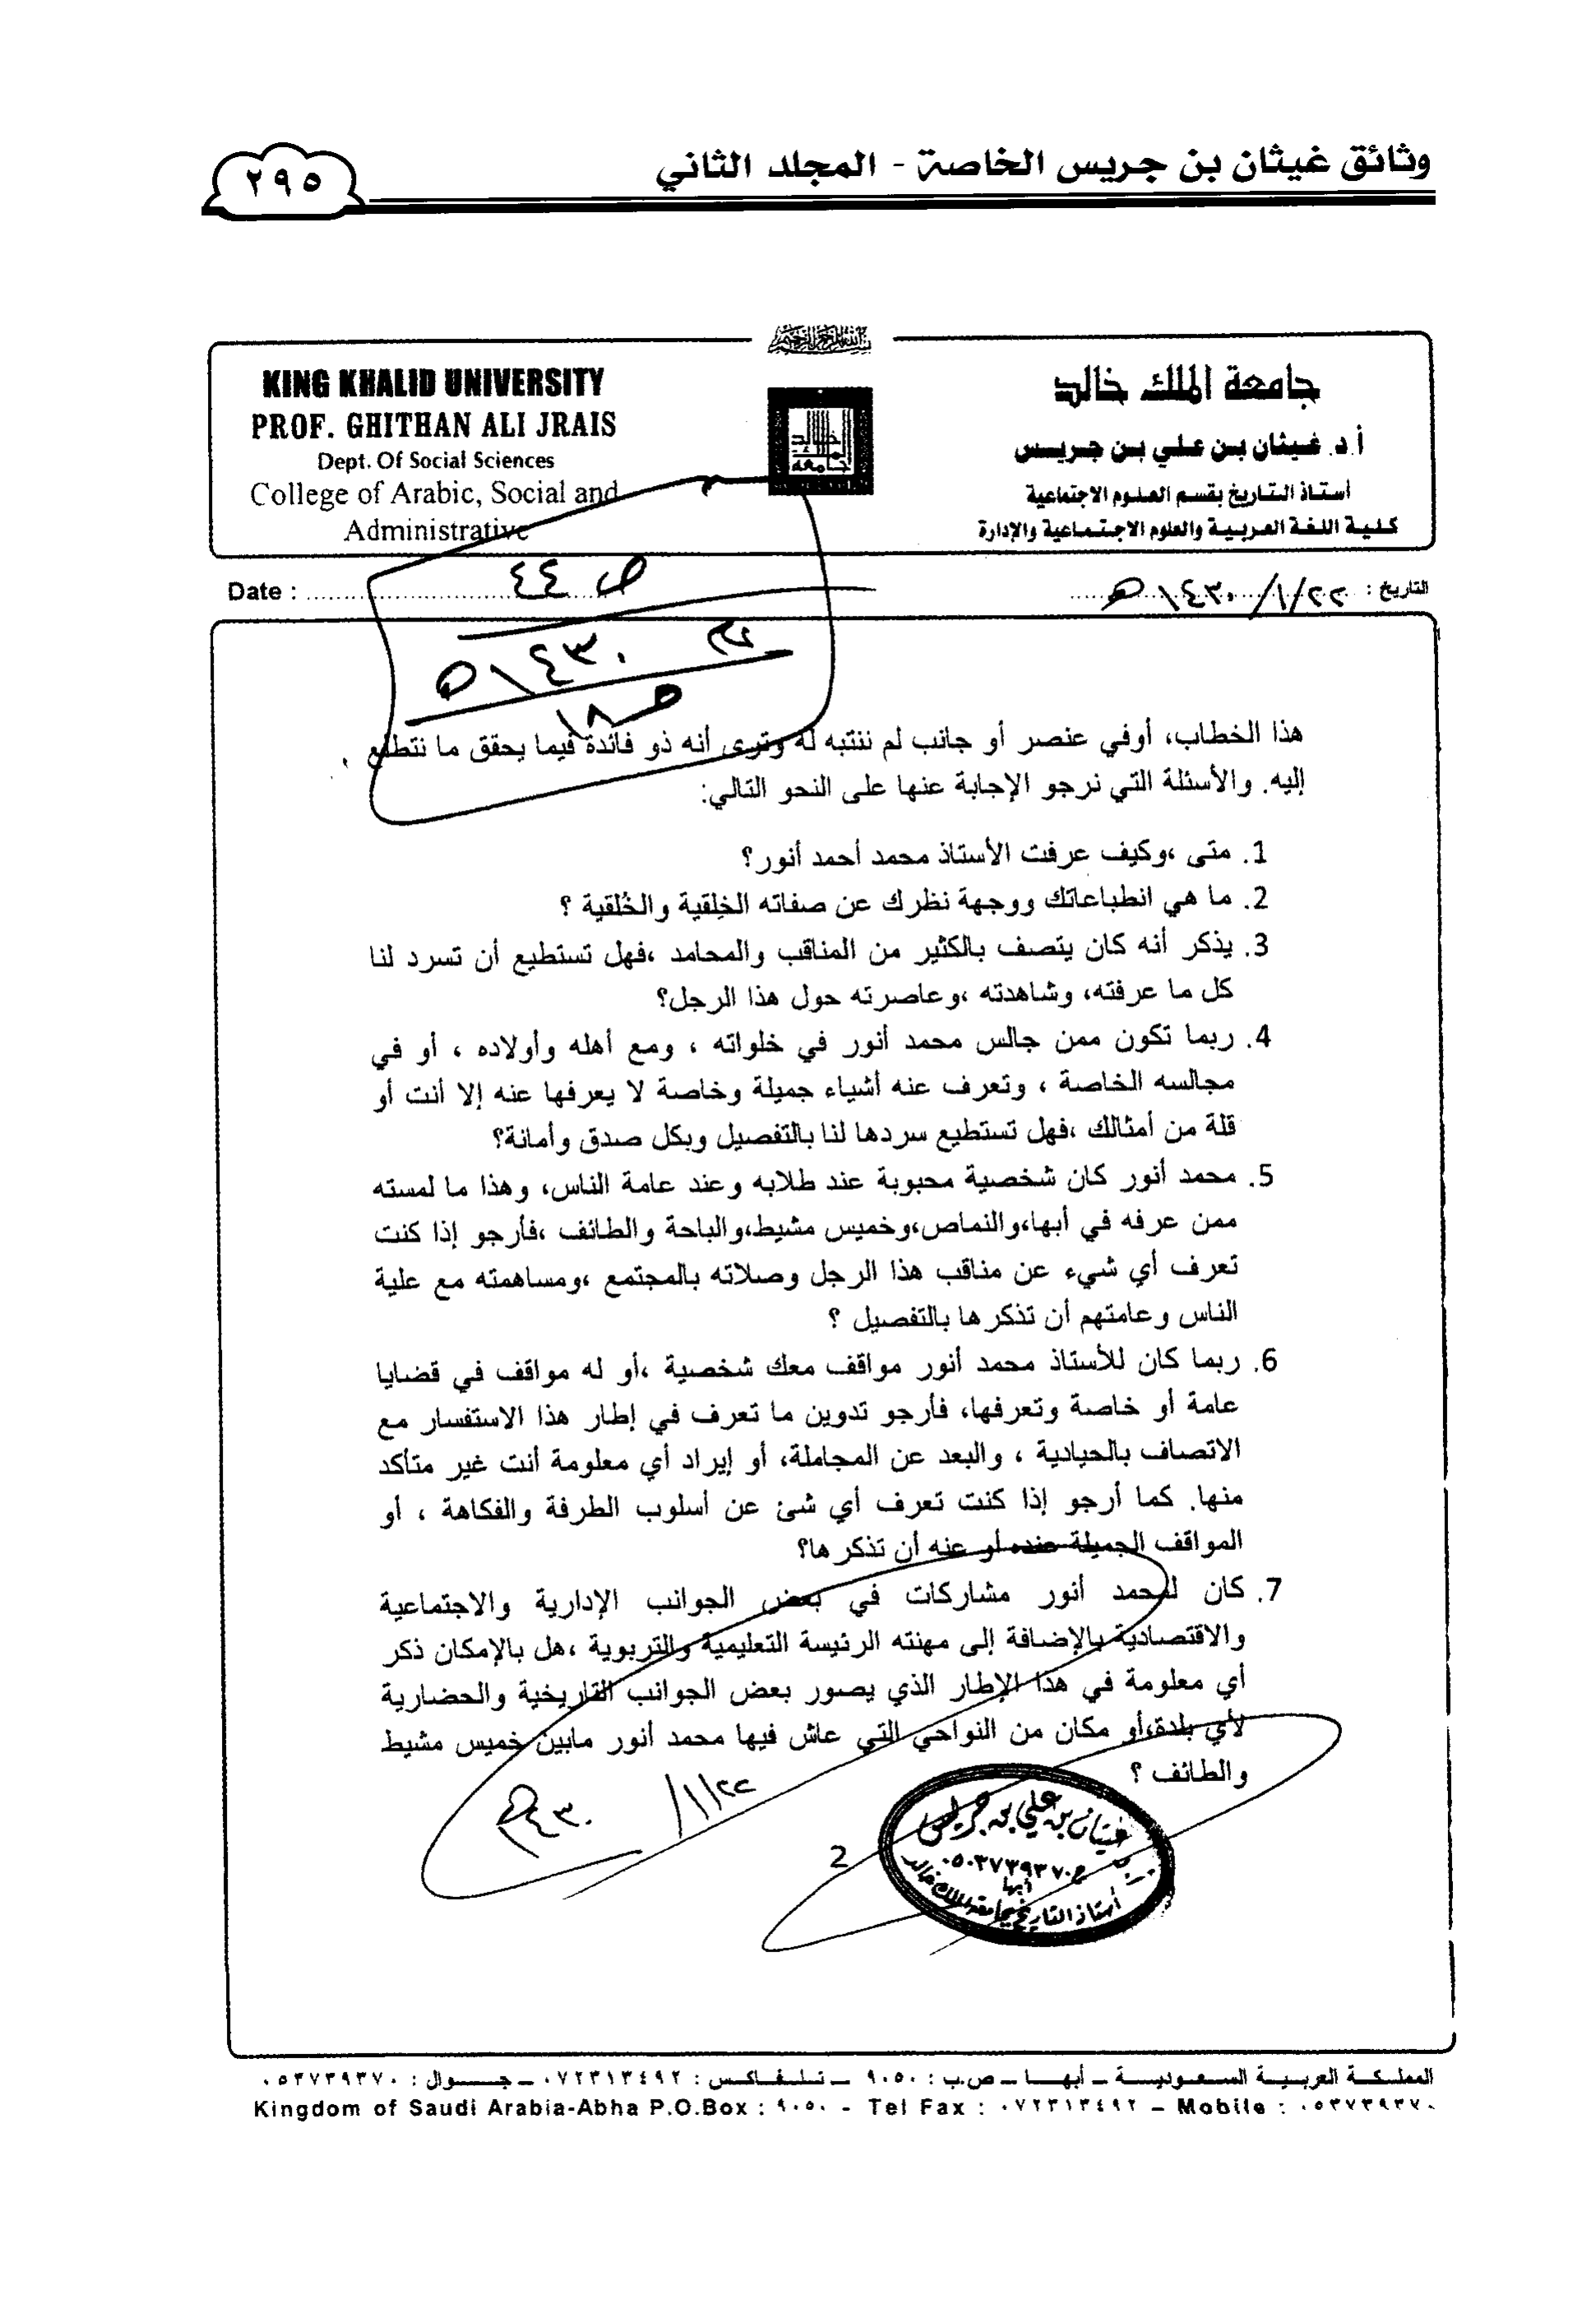 وثائق غيثان بن جريس الخاصة - المجلد الثاني
٢٩٥
جامعة الملك خالد
أ.د. غيثان بن علي بن جريس
أستاذ التاريخ بقسم العلوم الاجتماعية
كلية اللغة العربية والعلوم الاجتماعية والإدارة
KING KHALID UNIVERSITY
PROF. GHITHAN ALI JRAIS
Dept. Of Social Sciences
College of Arabic, Social and
Administrative
التاريخ : ٢٢/١/١٤٣٠هـ
Date :
ص ٤٤
١٤٣٠هـ
هذا الخطاب، أوفي عنصر أو جانب لم ننتبه له وترى أنه ذو فائدة فيما يحقق ما نتطلع
إليه. والأسئلة التي نرجو الإجابة عنها على النحو التالي:
1. متى ،وكيف عرفت الأستاذ محمد أحمد أنور؟
2. ما هي انطباعاتك ووجهة نظرك عن صفاته الخِلقية والخُلقية ؟
3. يذكر أنه كان يتصف بالكثير من المناقب والمحامد ،فهل تستطيع أن تسرد لنا
كل ما عرفته، وشاهدته ،وعاصرته حول هذا الرجل؟
4. ربما تكون ممن جالس محمد أنور في خلواته ، ومع أهله وأولاده ، أو في
مجالسه الخاصة ، وتعرف عنه أشياء جميلة وخاصة لا يعرفها عنه إلا أنت أو
قلة من أمثالك ،فهل تستطيع سردها لنا بالتفصيل وبكل صدق وأمانة؟
5. محمد أنور كان شخصية محبوبة عند طلابه وعند عامة الناس، وهذا ما لمسته
ممن عرفه في أبها،والنماص،وخميس مشيط،والباحة والطائف ،فأرجو إذا كنت
تعرف أي شيء عن مناقب هذا الرجل وصلاته بالمجتمع ،ومساهمته مع علية
الناس وعامتهم أن تذكرها بالتفصيل ؟
6. ربما كان للأستاذ محمد أنور مواقف معك شخصية ،أو له مواقف في قضايا
عامة أو خاصة وتعرفها، فأرجو تدوين ما تعرف في إطار هذا الاستفسار مع
الاتصاف بالحيادية ، والبعد عن المجاملة، أو إيراد أي معلومة أنت غير متأكد
منها. كما أرجو إذا كنت تعرف أي شئ عن أسلوب الطرفة والفكاهة ، أو
المواقف الجميلة عنده أو عنه أن تذكرها؟
7. كان لمحمد أنور مشاركات في بعض الجوانب الإدارية والاجتماعية
والاقتصادية بالإضافة إلى مهنته الرئيسة التعليمية والتربوية ،هل بالإمكان ذكر
أي معلومة في هذا الإطار الذي يصور بعض الجوانب التاريخية والحضارية
لأي بلدة،أو مكان من النواحي التي عاش فيها محمد أنور مابين خميس مشيط
والطائف ؟
٢٢/١/١٤٣٠هـ
غيثان بن علي بن جريس
ج ٠٥٠٣٧٣٩٣٧٠
أبها
أستاذ التاريخ بجامعة الملك خالد
2
المملكة العربية السعودية – أبها – ص.ب : ٩٠٥٠ – تلفاكس : ٠٧٢٣١٣٤٩٢ – جوال : ٠٥٣٧٣٩٣٧٠
Kingdom of Saudi Arabia-Abha P.O.Box : ٩٠٥٠ - Tel Fax : ٠٧٢٣١٣٤٩٢ – Mobile : ٠٥٣٧٣٩٣٧٠